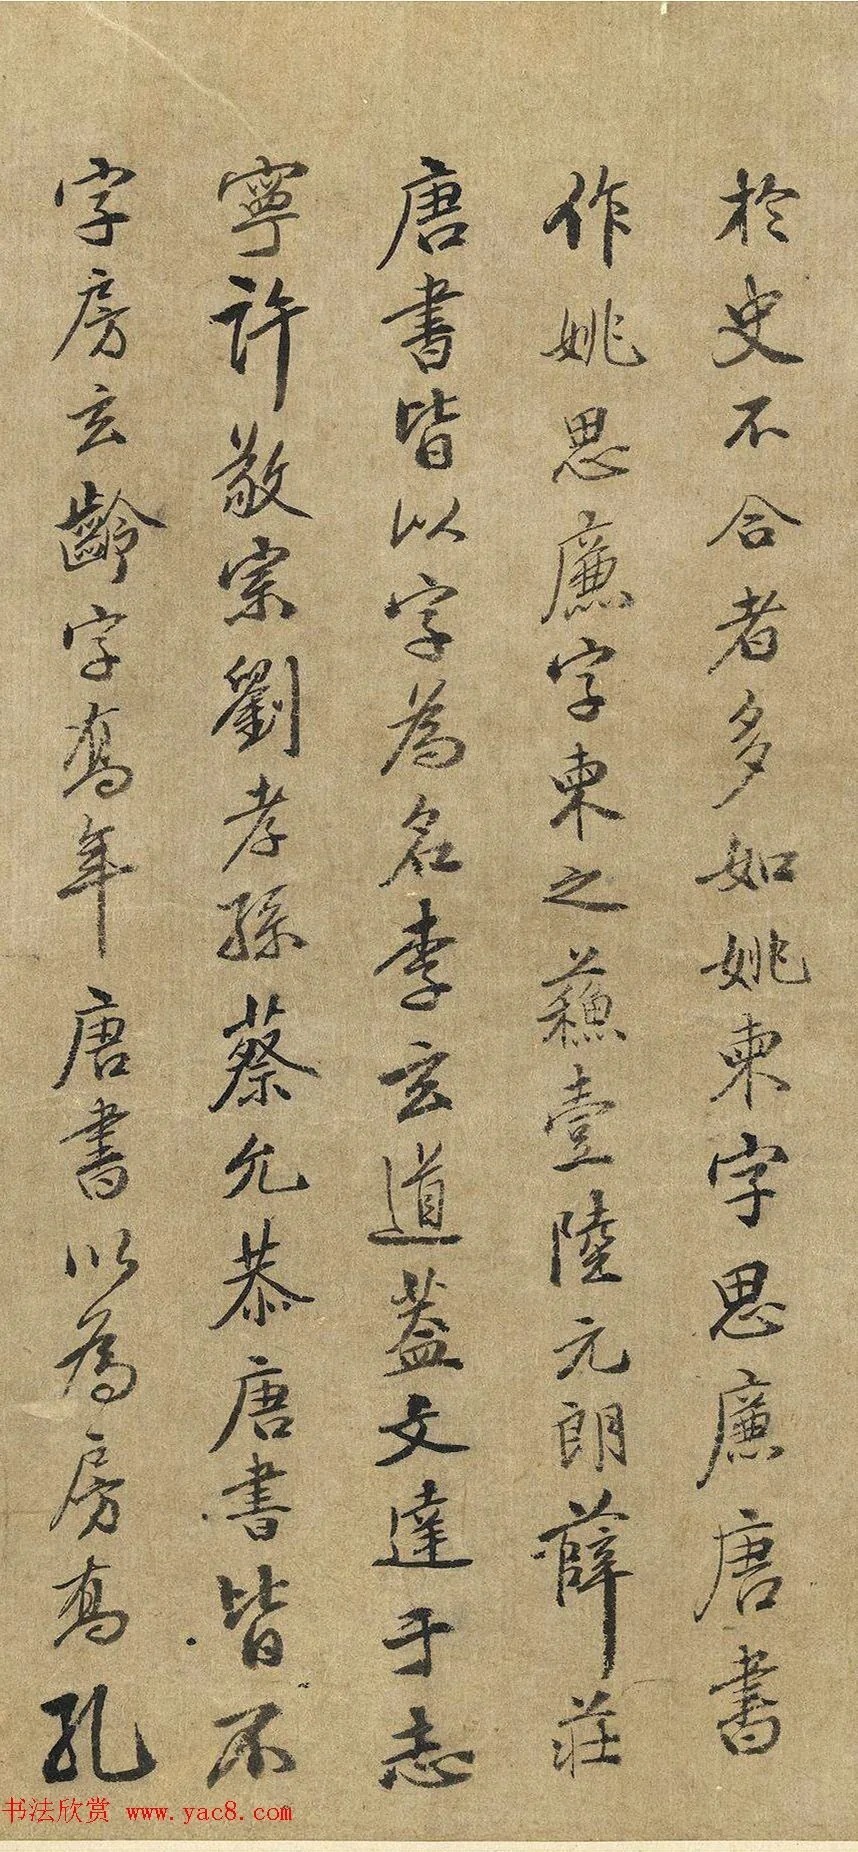 於史不合者多如姚柬字思廉唐書
作姚思廉字柬之蘇壹陸元朗薛莊
唐書皆以字為名李玄道蓋文達于志
寧許敬宗劉孝孫蔡允恭唐書皆不
字房玄齡字喬年唐書以為房喬孔
书法欣赏 www.yac8.com